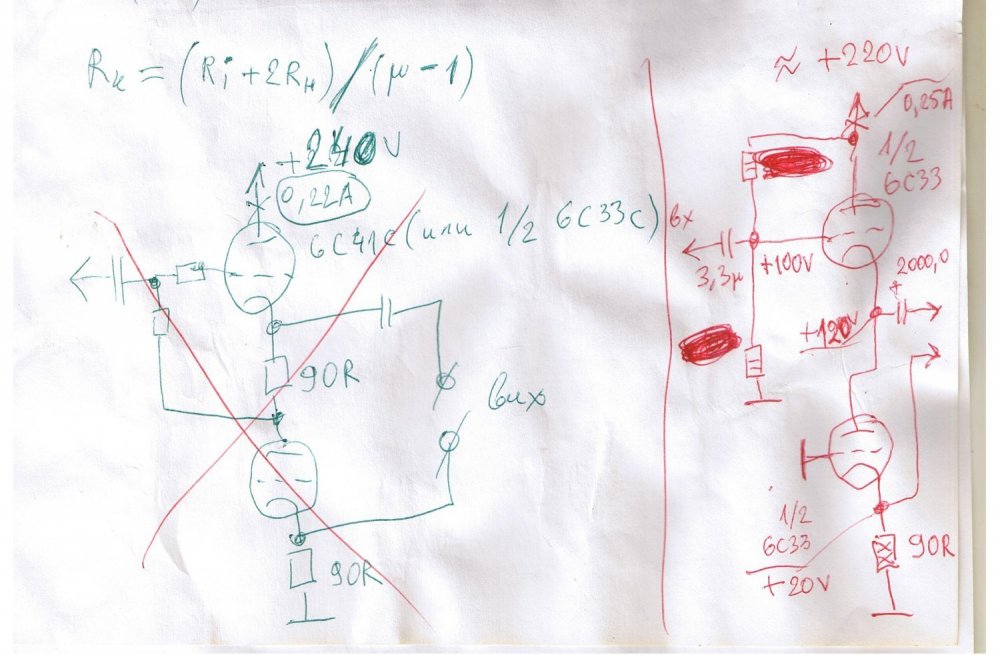 Rк = (Ri + 2Rн) / (μ - 1)
+240V
0,22A
6С41С (или 1/2 6С33С)
90R
вих
90R
≈ +220V
0,25A
1/2
6С33
вх
3,3μ
+100V
2000,0
+
+120V
1/2
6С33
+20V
90R